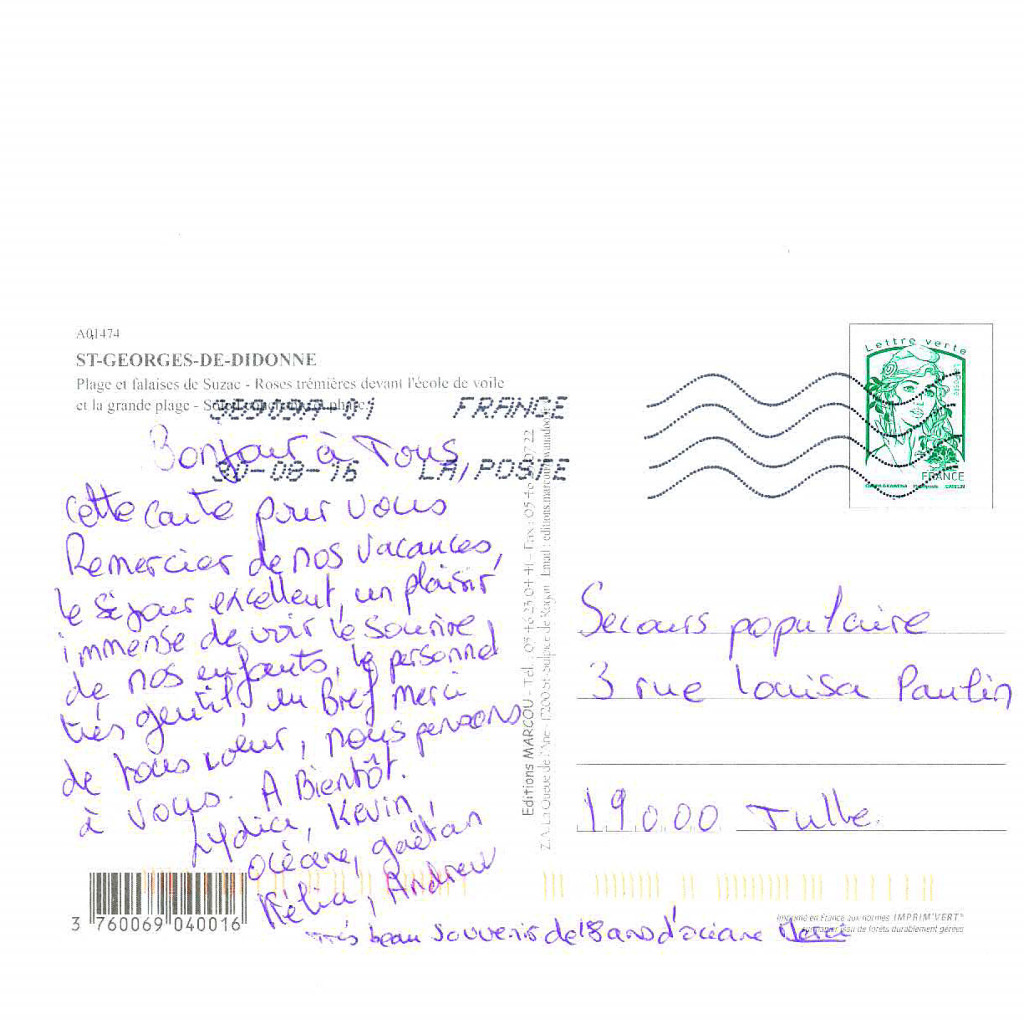 A01474
ST-GEORGES-DE-DIDONNE
Plage et falaises de Suzac - Roses trémières devant l'école de voile
et la grande plage -
FRANCE
30-08-16 LA POSTE
Bonjour à Tous
cette carte pour vous
Remercier de nos vacances,
le séjour excellent, un plaisir
immense de voir le sourire
de nos enfants, le personnel
très gentil, en Bref merci
de tous cœur, nous pensons
à vous. A Bientôt.
Lydia, Kevin,
océane, gaëtan
Kélia, Andrew
très beau souvenir de 18 ans d'océane Merci
3 760069 040016
Editions MARCOU - Tél. 05 46 23 04 41 - Fax : 05 46
Z.A. La Queue de l'Ane - 17200 St-Sulpice de Royan - Email : editions.marcou
Lettre verte
FRANCE
Secours populaire
3 rue Louisa Paulin
19000 Tulle.
Imprimé en France aux normes IMPRIM'VERT
sur papier issu de forêts durablement gérées